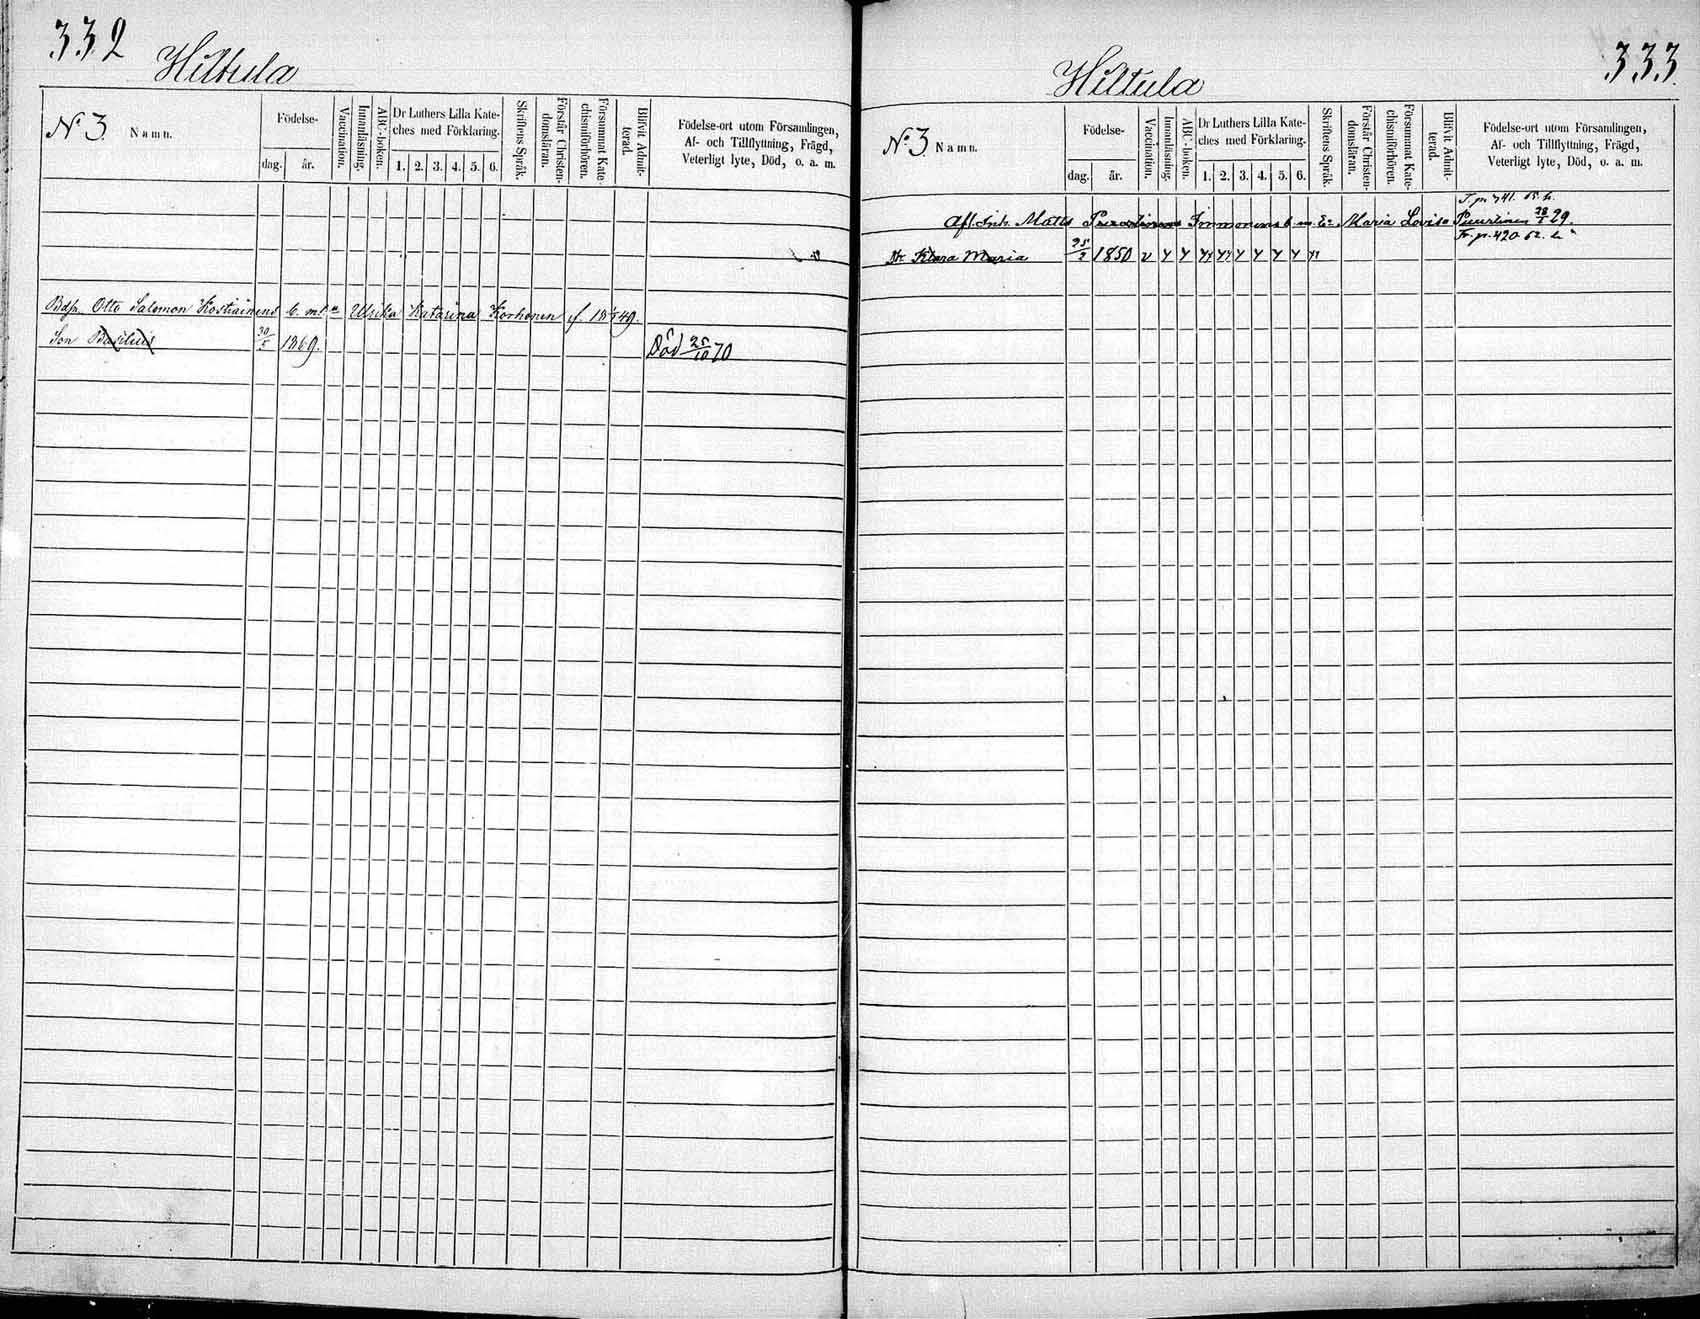 332
Hiltula
N:o 3.
Namn.
Födelse-
dag.
år.
Vaccination.
Innanläsning.
ABC-boken.
Dr Luthers Lilla Kate-
ches med Förklaring.
1. 2. 3. 4. 5. 6.
Skriftens Språk.
Förstår Christen-
domsläran.
Försummat Kate-
chismiförhören.
Blifvit Admit-
terad.
Födelse-ort utom Församlingen,
Af- och Tillflyttning, Frägd,
Veterligt lyte, Död, o. a. m.
Bdsn. Otto Salomon Kostiainens b. m. Ulrika Katarina Korhonen f. 49.
Son Basilius 30/5 1869. Död 25/10 70
333
Hiltula
N:o 3.
Namn.
Födelse-
dag.
år.
Vaccination.
Innanläsning.
ABC-boken.
Dr Luthers Lilla Kate-
ches med Förklaring.
1. 2. 3. 4. 5. 6.
Skriftens Språk.
Förstår Christen-
domsläran.
Försummat Kate-
chismiförhören.
Blifvit Admit-
terad.
Födelse-ort utom Församlingen,
Af- och Tillflyttning, Frägd,
Veterligt lyte, Död, o. a. m.
T. p. 741. 65. h.
Afl. Inh. Matts Immonens b. m. Maria Lovisa Puurtinen 29
Fr. p. 420. 62. h
Dr Klara Maria 25/2 1850